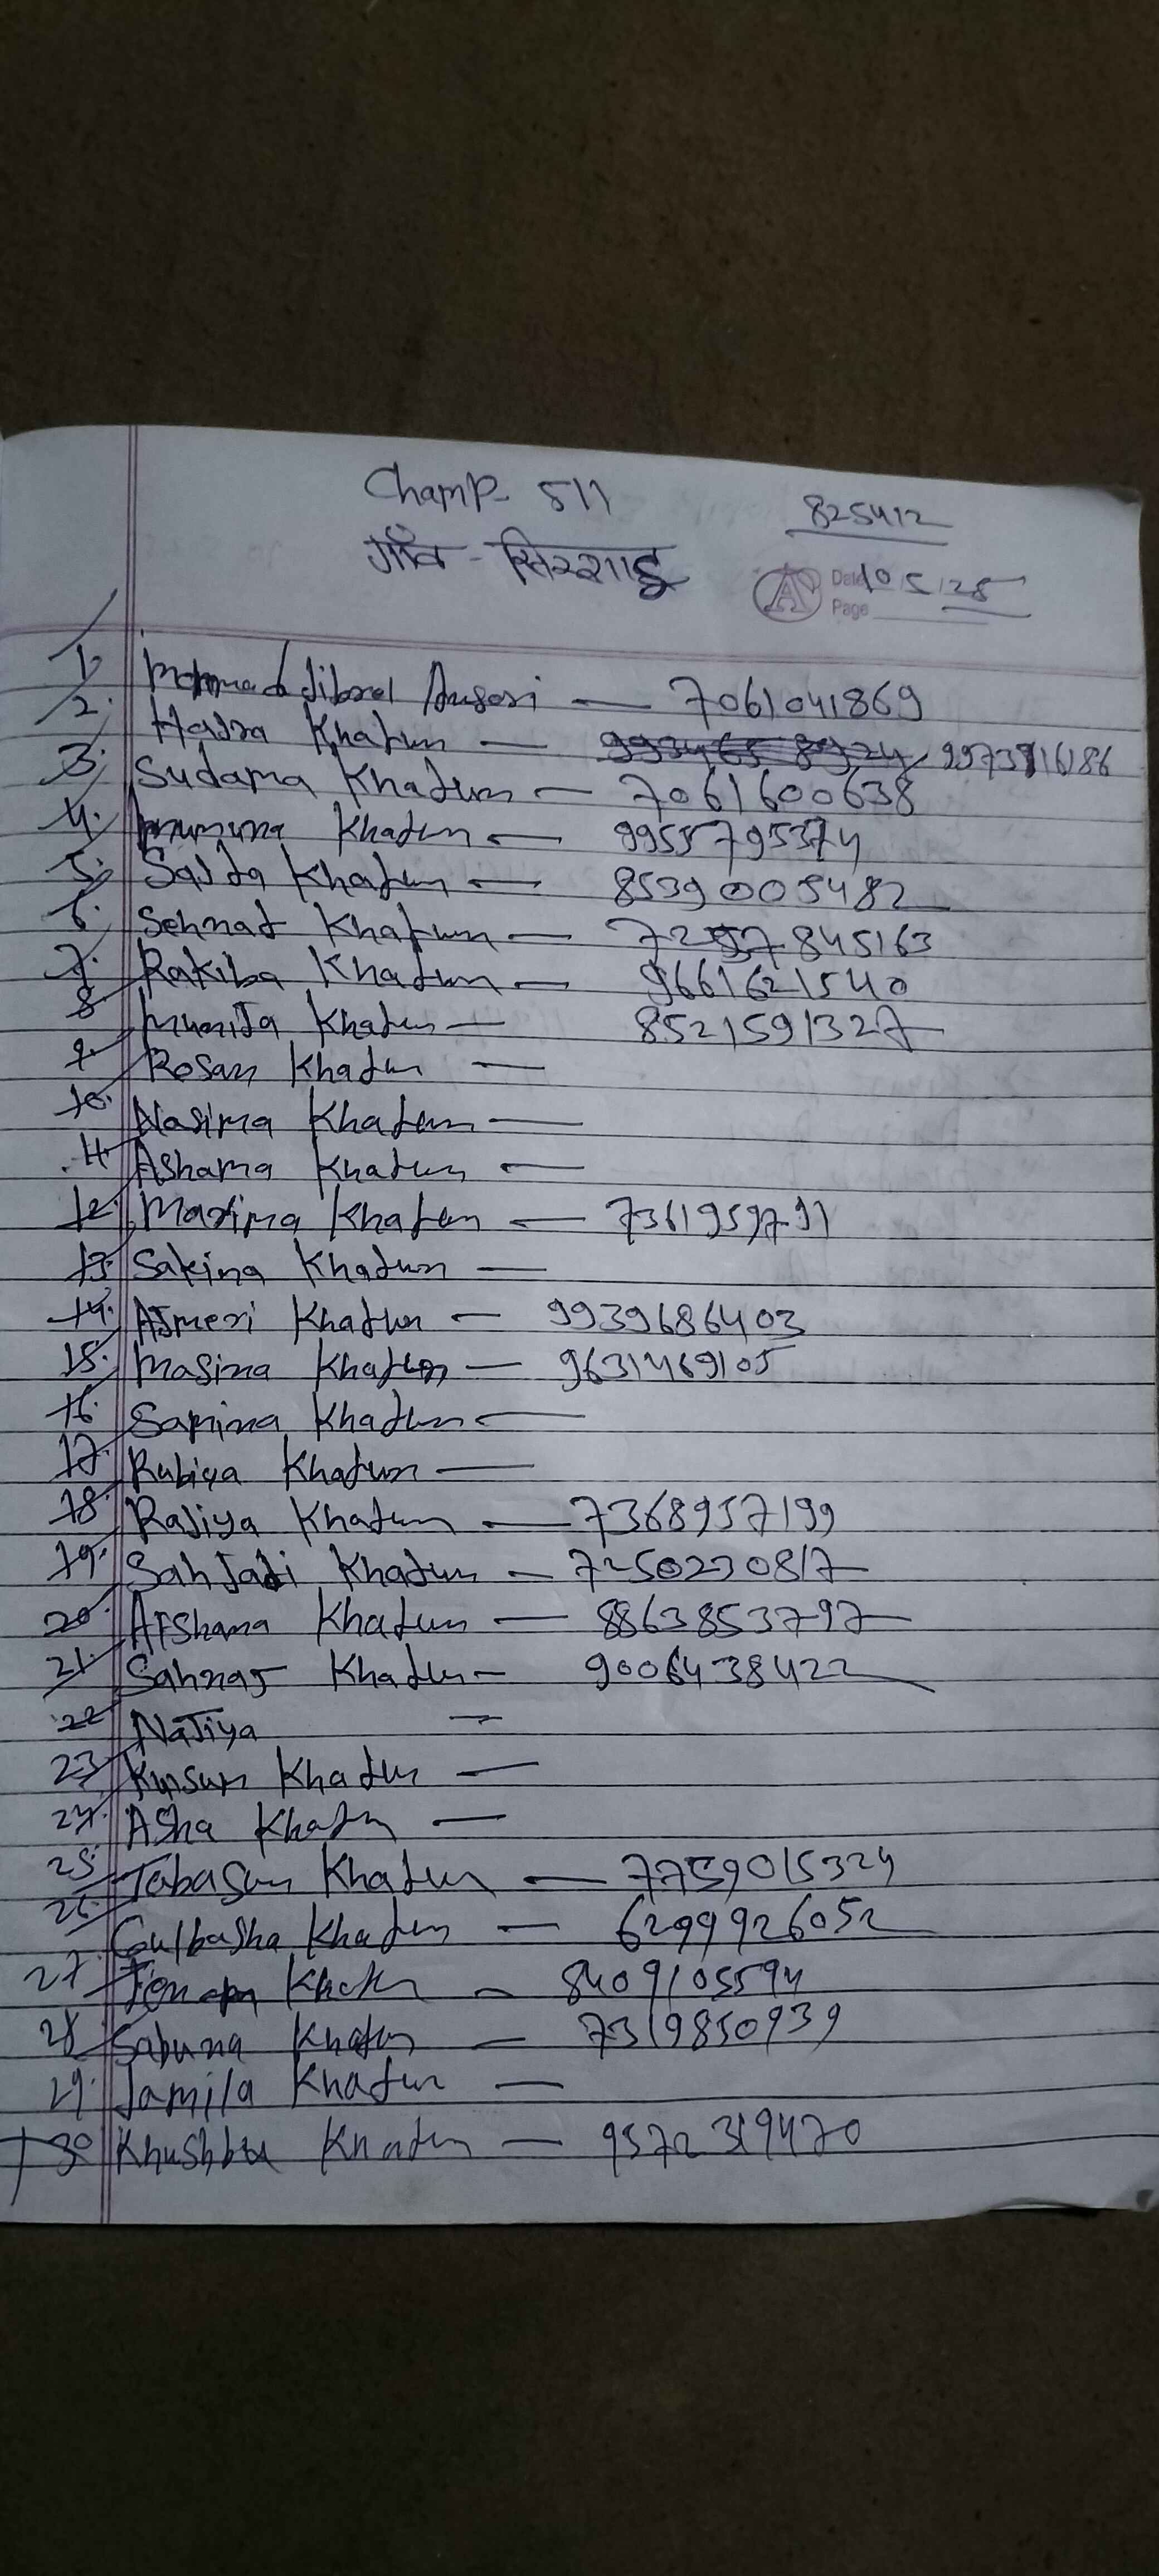 Champ- 511
825412
गाँव - सिरसाडू
Date 10 5 25
Page
1. Mohmad Jibrael Ansari — 7061041869
2. Hajra Khatun — 9973916186
3. Sudama Khatun — 7061600638
4. Mumuna Khatun — 9955795374
5. Sajda Khatun — 8539005482
6. Sehnat Khatun — 7257845163
7. Rakiba Khatun — 9661621540
8 Munija Khatun — 8521591327
9. Rosan Khatun —
10. Nasima Khatun —
11. Ashama Khatun —
12. Marima Khatun — 7361959791
13. Sakina Khatun —
14. Ajmeri Khatun — 9939686403
15. Masina Khatun — 9631469105
16. Samina Khatun —
17. Rubiya Khatun —
18. Rajiya Khatun — 7368957199
19. Sahjadi Khatun — 7250230817
20. Afshana Khatun — 8863853797
21. Sahnaj Khatun — 9006438422
22 Najiya —
23. Kunsun Khatun —
24. Asha Khatun —
25. Tabasun Khatun — 7759015324
26. Gulbasha Khatun — 6299926052
27. Khatun — 8409105594
28 Sabuna Khatun — 7319850939
29. Jamila Khatun —
30 Khushbu Khatun — 9572319470